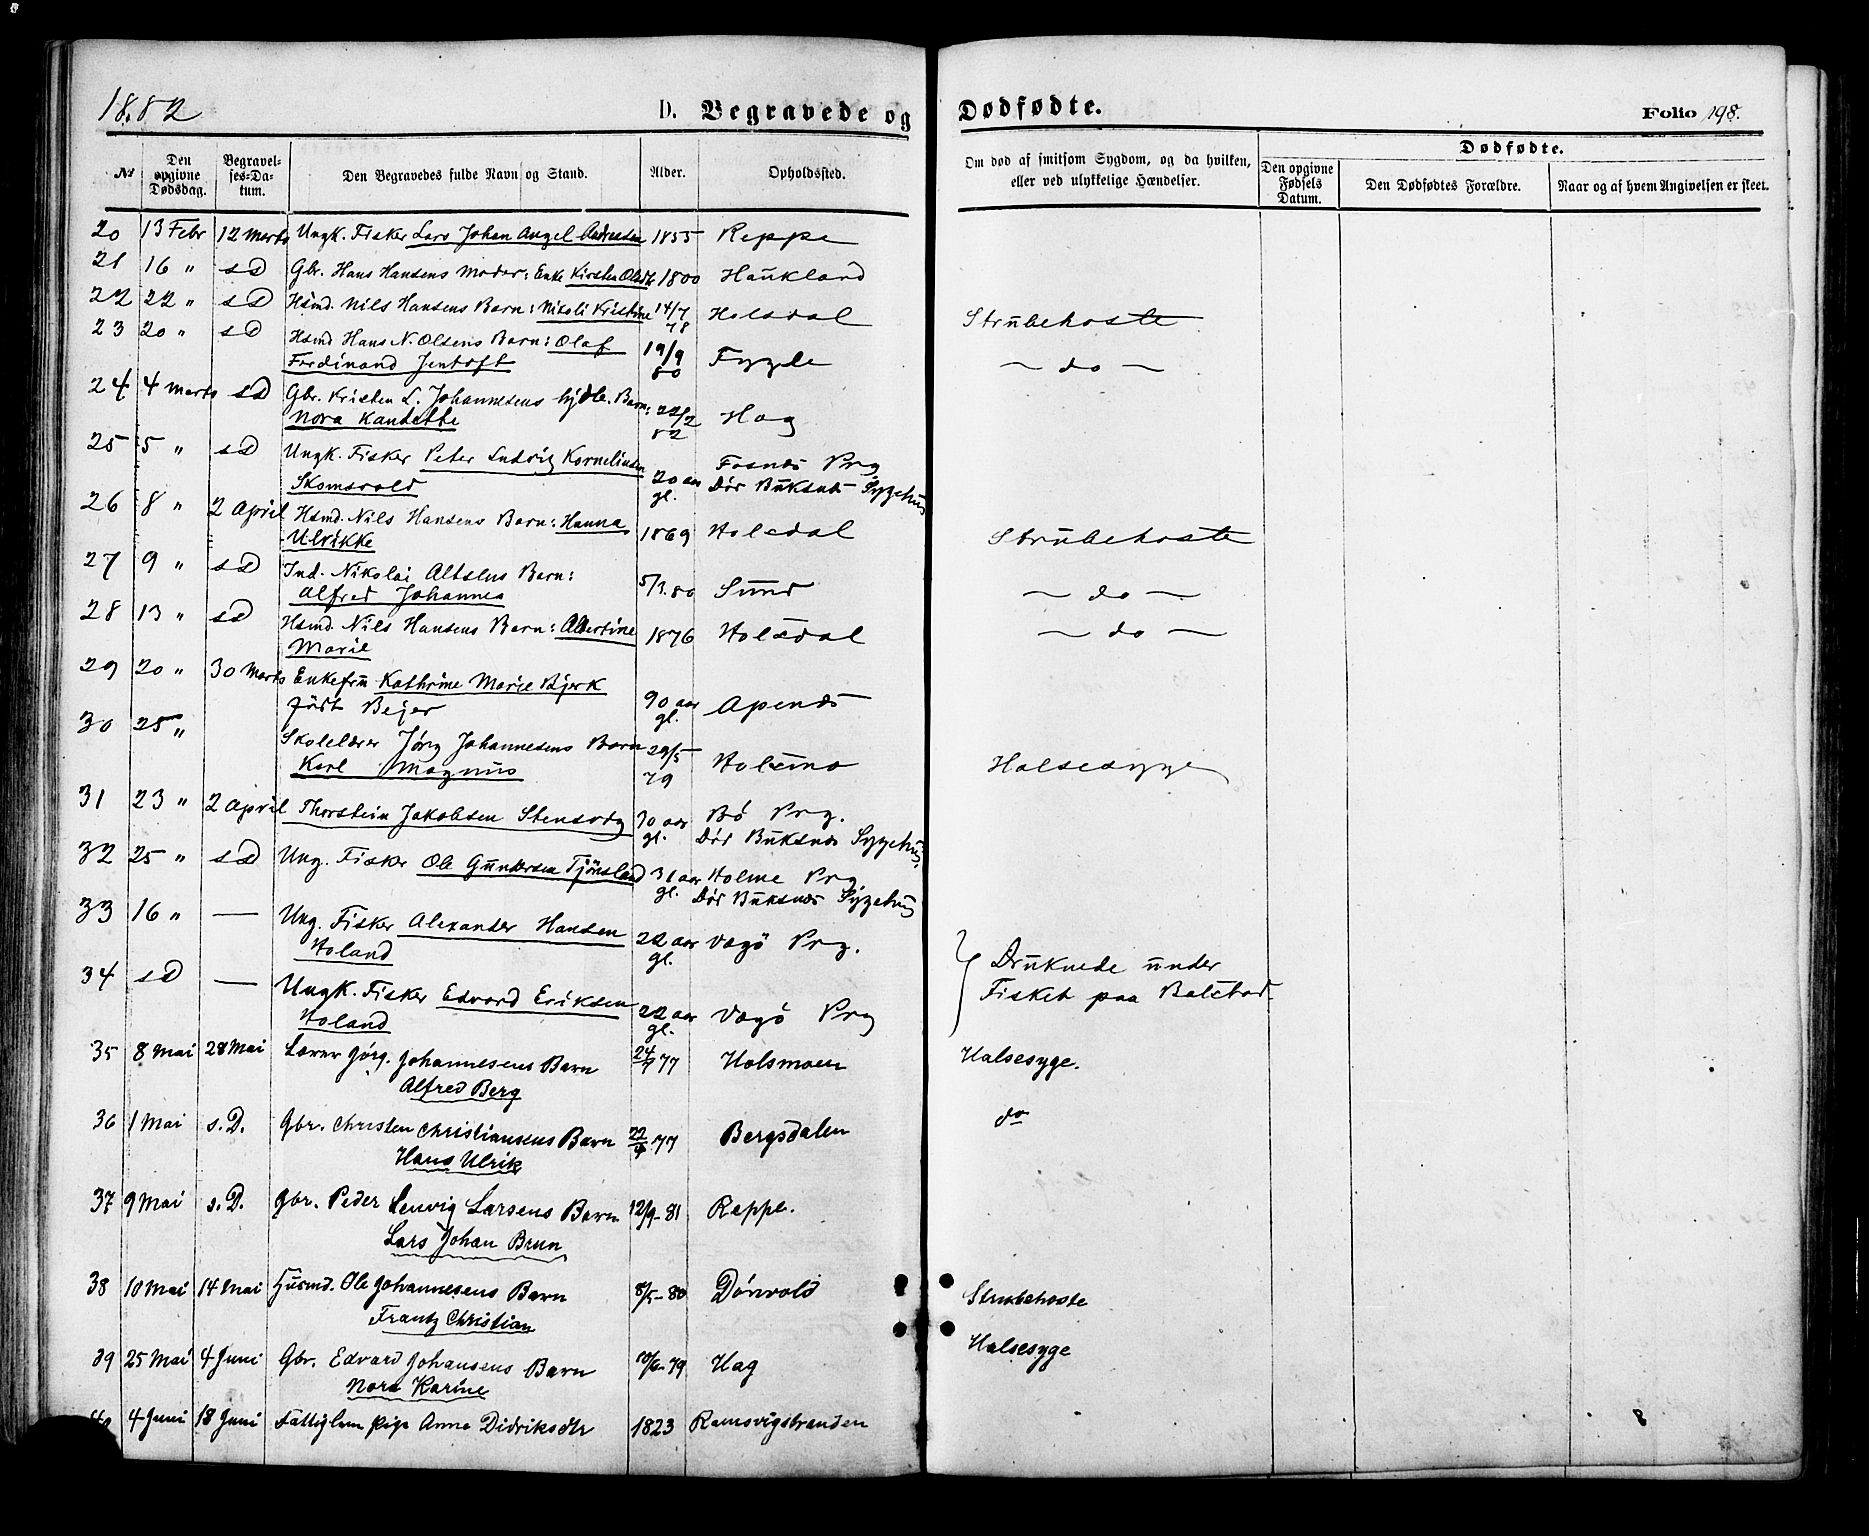 1882 D. Begravede og Dødfødte. Folio 198.
№ Den opgivne Dødsdag. Begravelses-Datum. Den Begravedes fulde Navn og Stand. Alder. Opholdssted. Om død af smitsom Sygdom, og da hvilken, eller ved ulykkelige Hændelser. Dødfødte. Den opgivne Fødsels Datum. Den Dødfødtes Forældre. Naar og af hvem Angivelsen er skeet.
20 13 Febr 12 Marts Ungk. Fisker Lars Johan Angel Andreasen 1855 Reppe
21 16 " s D Gbr. Hans Hansens Moder: Enke Kirsten Olsdtr 1800 Haukland
22 22 " s D Hsmd. Nils Hansens Barn: Nikoli Kristine 14/7 78 Holsdal Strubehoste
23 20 " s D Hsmd Hans N. Olsens Barn: Olaf
Ferdinand Jentoft 19/9 80 Fygle – do –
24 4 Marts s D Gbr. Kristen L. Johannesens hjdb. Barn:
Nora Kandette 22/2 82 Hag
25 5 " s D Ungk. Fisker Peter Ludvig Kornelinsen
Skomsvold 20 aar gl. Fosnæs Prg
Dør Buksnæs Sygehus
26 8 " 2 April Hsmd. Nils Hansens Barn: Hanna
Ulrikke 1869 Holsdal Strubehoste
27 9 " s D Ind. Nikolai Altelus Barn:
Alfred Johannes 5/3.80 Sund – do –
28 13 " s D Hsmd. Nils Hansens Barn: Albertine
Marie 1876 Holsdal – do –
29 20 " 30 Marts Enkefru Kathrine Marie Bjerk
født Bejer 90 aar gl. Apenæs
30 25 " Skolelærer Jørg Johannesens Barn
Karl Magnus 29/5 79 Holsmo Halsesyge
31 23 " 2 April Thorstein Jakobsen Stensvog 30 aar gl. Bø Prg.
Dør Buksnæs Sygehus.
32 25 " s D Ung. Fisker Ole Gundersen Tjönsland 31 aar gl. Holme Prg
Dør Buksnæs Sygehus
33 16 " — Ung. Fisker Alexander Hansen
Holand 22 aar gl. Vegö Prg.
34 s D — Ungk. Fisker Edvard Eriksen
Holand 22 aar gl. Vegö Prg
Druknede under
Fisket paa Balstad
35 8 Mai 28 Mai Lærer Jørg. Johannesens Barn 24/7 77 Holsmoen Halsesyge.
Alfred Berg
36 1 Mai s. D. Gbr. Christen Christiansens Barn 22/4 77 Bergsdalen do
Hans Ulrik
37 9 Mai s. D. Gbr. Peder Lenvig Larsens Barn 12/9-81 Reppe.
Lars Johan Brun
38 10 Mai 14 Mai Husmd. Ole Johannesens Barn 8/5-80 Dörvold Strubehoste
Frantz Christian
39 25 Mai 4 Juni Gbr. Edvard Johansens Barn 10/6-79 Hag Halsesyge
Nora Karine
40 4 Juni 18 Juni Fattiglem Pige Anna Didriksdtr 1823 Ramsvigstranden